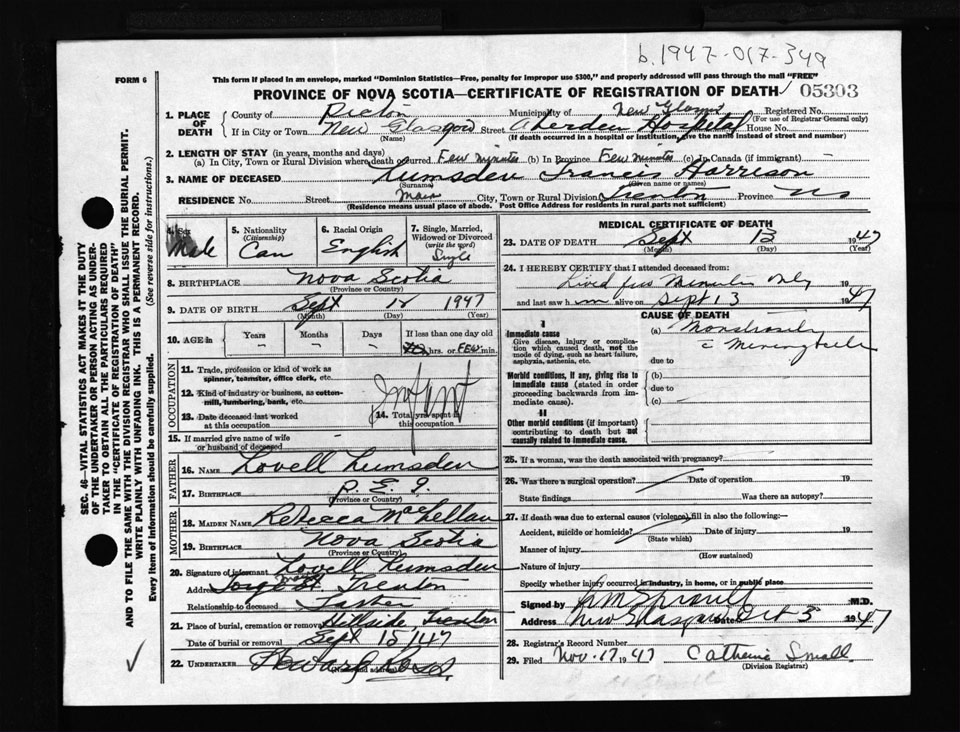 b. 1947-017-349
FORM 6
This form if placed in an envelope, marked "Dominion Statistics—Free, penalty for improper use $300," and properly addressed will pass through the mail "FREE"
PROVINCE OF NOVA SCOTIA—CERTIFICATE OF REGISTRATION OF DEATH
05303
1. PLACE OF DEATH
County of Pictou Municipality of New Glasgow Registered No.
(For use of Registrar General only)
If in City or Town New Glasgow Street Aberdeen Hospital House No.
(Name) (If death occurred in a hospital or institution, give the name instead of street and number)
2. LENGTH OF STAY (in years, months and days)
(a) In City, Town or Rural Division where death occurred. Few minutes (b) In Province Few minutes (c) In Canada (if immigrant)
3. NAME OF DECEASED Lumsden Francis Harrison
(Surname) (Given name or names)
RESIDENCE No. Street Main City, Town or Rural Division Trenton Province N S
(Residence means usual place of abode. Post Office Address for residents in rural parts not sufficient)
4. Sex Male
5. Nationality (Citizenship) Can
6. Racial Origin English
7. Single, Married, Widowed or Divorced (write the word) Single
8. BIRTHPLACE Nova Scotia
(Province or Country)
9. DATE OF BIRTH Sept 1947
(Month) (Day) (Year)
10. AGE in Years Months Days If less than one day old
hrs. or FEW min.
OCCUPATION
11. Trade, profession or kind of work as spinner, teamster, office clerk, etc.
12. Kind of industry or business, as cotton-mill, lumbering, bank, etc.
Infant
13. Date deceased last worked at this occupation
14. Total yrs. spent in this occupation
15. If married give name of wife or husband of deceased –
FATHER
16. NAME Lovell Lumsden
17. BIRTHPLACE P. E. I.
(Province or Country)
MOTHER
18. MAIDEN NAME Rebecca MacLellan
19. BIRTHPLACE Nova Scotia
(Province or Country)
20. Signature of informant Lovell Lumsden
Address Trenton
Relationship to deceased Father
21. Place of burial, cremation or removal Hillside, Trenton
Date of burial or removal Sept 15 1947
22. UNDERTAKER
(Name and address)
MEDICAL CERTIFICATE OF DEATH
23. DATE OF DEATH Sept 13 1947
(Month) (Day) (Year)
24. I HEREBY CERTIFY that I attended deceased from:
Lived few minutes only
and last saw him alive on Sept 13 1947
CAUSE OF DEATH
I
Immediate cause
Give disease, injury or complication which caused death, not the mode of dying, such as heart failure, asphyxia, asthenia, etc.
(a) Monstrosity
c Meningocele
due to
Morbid conditions, if any, giving rise to immediate cause (stated in order proceeding backwards from immediate cause).
(b)
due to
(c)
II
Other morbid conditions (if important) contributing to death but not causally related to immediate cause.
25. If a woman, was the death associated with pregnancy?
26. Was there a surgical operation? Date of operation 19
State findings Was there an autopsy?
27. If death was due to external causes (violence) fill in also the following:—
Accident, suicide or homicide? Date of injury 19
(State which)
Manner of injury
(How sustained)
Nature of injury
Specify whether injury occurred in industry, in home, or in public place
Signed by M.D.
Address New Glasgow Date Oct 3 1947
28. Registrar's Record Number
29. Filed Nov. 17 1947 Catherine Small
(Division Registrar)
SEC. 46—VITAL STATISTICS ACT MAKES IT THE DUTY
OF THE UNDERTAKER OR PERSON ACTING AS UNDERTAKER
TO OBTAIN ALL THE PARTICULARS REQUIRED
IN THE "CERTIFICATE OF REGISTRATION OF DEATH"
AND TO FILE THE SAME WITH THE DIVISION REGISTRAR WHO SHALL ISSUE THE BURIAL PERMIT.
WRITE PLAINLY WITH UNFADING INK. THIS IS A PERMANENT RECORD.
Every item of information should be carefully supplied. (See reverse side for instructions.)